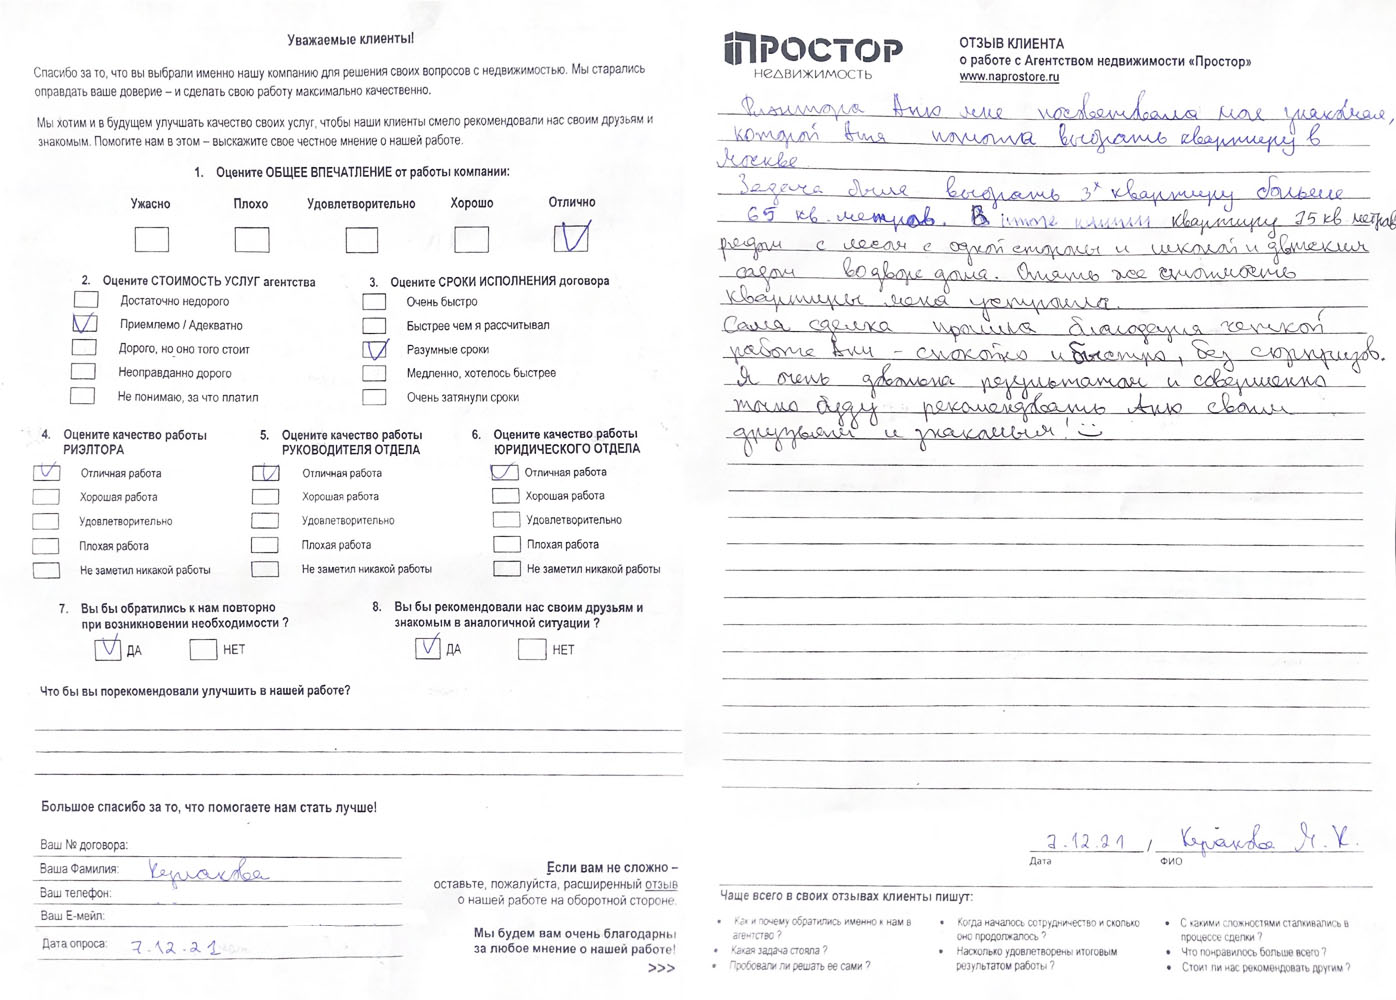 Уважаемые клиенты!
Спасибо за то, что вы выбрали именно нашу компанию для решения своих вопросов с недвижимостью. Мы старались
оправдать ваше доверие – и сделать свою работу максимально качественно.
Мы хотим и в будущем улучшать качество своих услуг, чтобы наши клиенты смело рекомендовали нас своим друзьям и
знакомым. Помогите нам в этом – выскажите свое честное мнение о нашей работе.
1. Оцените ОБЩЕЕ ВПЕЧАТЛЕНИЕ от работы компании:
Ужасно Плохо Удовлетворительно Хорошо Отлично
2. Оцените СТОИМОСТЬ УСЛУГ агентства
Достаточно недорого
Приемлемо / Адекватно
Дорого, но оно того стоит
Неоправданно дорого
Не понимаю, за что платил
3. Оцените СРОКИ ИСПОЛНЕНИЯ договора
Очень быстро
Быстрее чем я рассчитывал
Разумные сроки
Медленно, хотелось быстрее
Очень затянули сроки
4. Оцените качество работы
РИЭЛТОРА
Отличная работа
Хорошая работа
Удовлетворительно
Плохая работа
Не заметил никакой работы
5. Оцените качество работы
РУКОВОДИТЕЛЯ ОТДЕЛА
Отличная работа
Хорошая работа
Удовлетворительно
Плохая работа
Не заметил никакой работы
6. Оцените качество работы
ЮРИДИЧЕСКОГО ОТДЕЛА
Отличная работа
Хорошая работа
Удовлетворительно
Плохая работа
Не заметил никакой работы
7. Вы бы обратились к нам повторно
при возникновении необходимости ?
ДА НЕТ
8. Вы бы рекомендовали нас своим друзьям и
знакомым в аналогичной ситуации ?
ДА НЕТ
Что бы вы порекомендовали улучшить в нашей работе?
Большое спасибо за то, что помогаете нам стать лучше!
Ваш № договора:
Ваша Фамилия:
Ваш телефон:
Ваш E-мейл:
Дата опроса: 7.12.21
Если вам не сложно –
оставьте, пожалуйста, расширенный отзыв
о нашей работе на оборотной стороне.
Мы будем вам очень благодарны
за любое мнение о нашей работе!
>>>
ПРОСТОР
НЕДВИЖИМОСТЬ
ОТЗЫВ КЛИЕНТА
о работе с Агентством недвижимости «Простор»
www.naprostore.ru
Риэлтора Аню мне посоветовала моя знакомая,
которой Аня помогла выбрать квартиру в
Москве.
Задача была выбрать 3х квартиру больше
65 кв. метров. В итоге купили квартиру 75 кв метров
рядом с лесом с одной стороны и школой и детским
садом во дворе дома. Опять же стоимость
квартиры меня устроила.
Сама сделка прошла благодаря четкой
работе Ани - спокойно и быстро, без сюрпризов.
Я очень довольна результатом и совершенно
точно буду рекомендовать Аню своим
друзьям и знакомым!
7.12.21 / М. К.
Дата ФИО
Чаще всего в своих отзывах клиенты пишут:
• Как и почему обратились именно к нам в
агентство ?
• Какая задача стояла ?
• Пробовали ли решать ее сами ?
• Когда началось сотрудничество и сколько
оно продолжалось ?
• Насколько удовлетворены итоговым
результатом работы ?
• С какими сложностями сталкивались в
процессе сделки ?
• Что понравилось больше всего ?
• Стоит ли нас рекомендовать другим ?